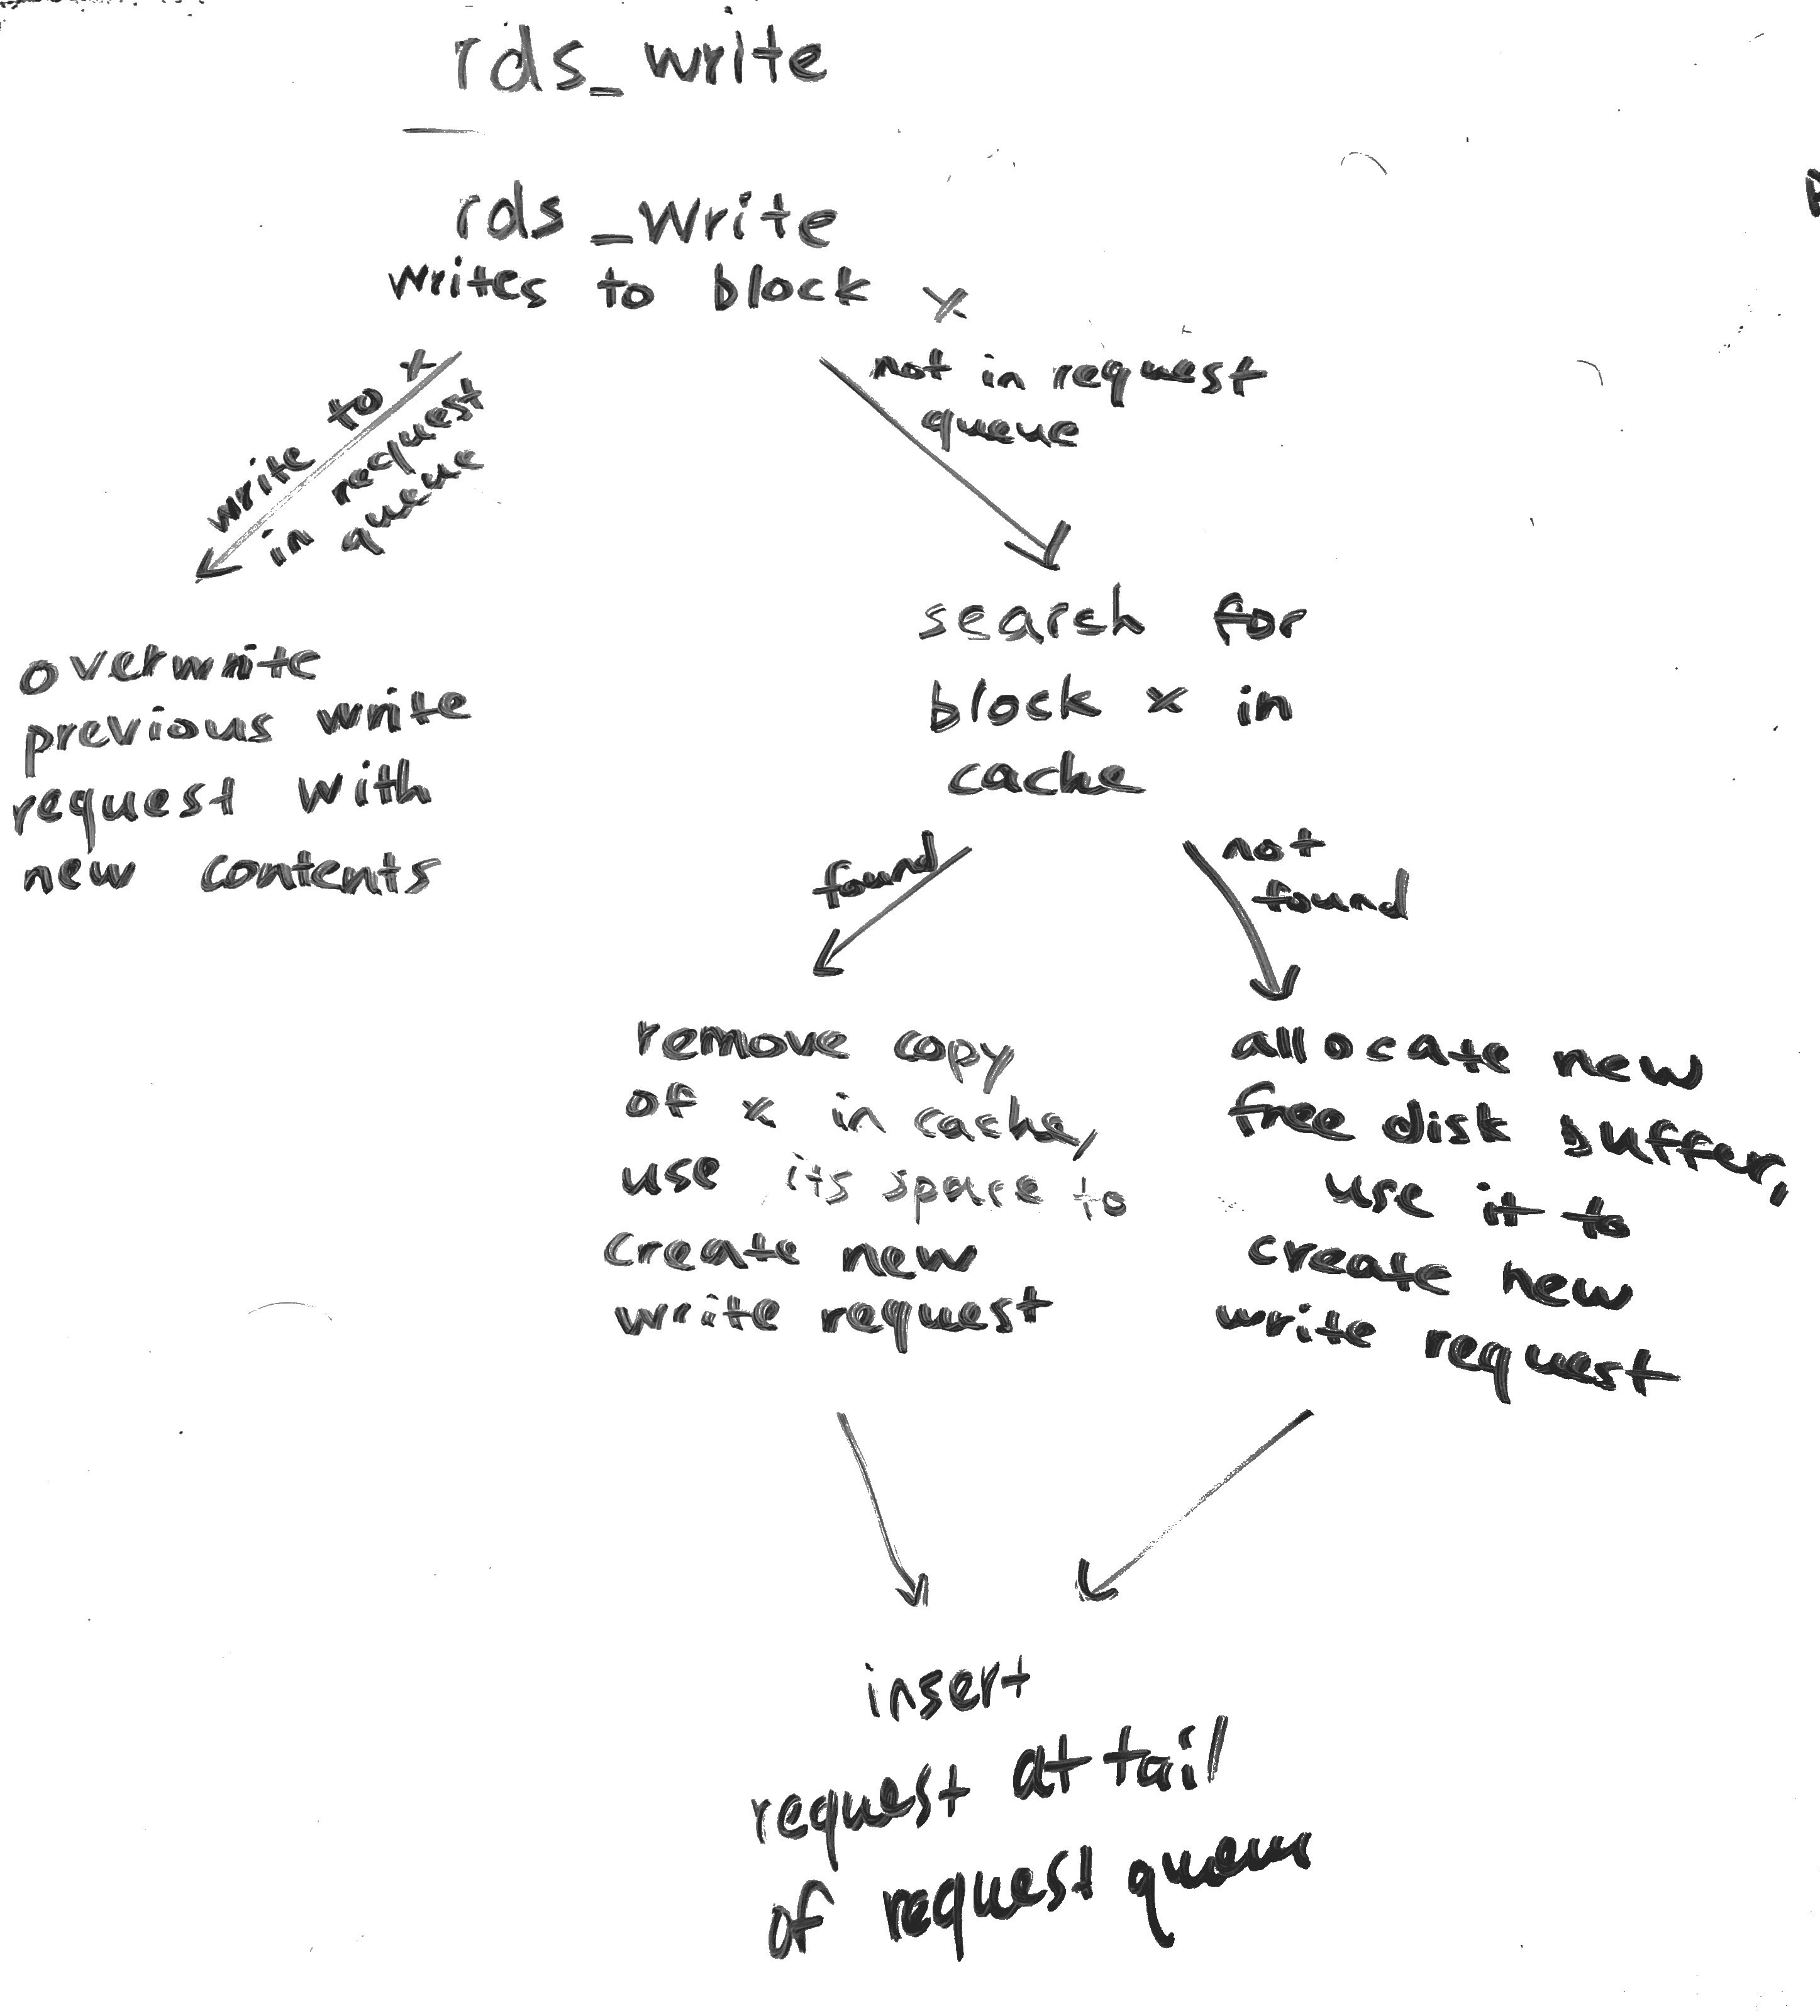 rds_write
rds_write
writes to block x
write to x
in request
queue
not in request
queue
overwrite
previous write
request with
new contents
search for
block x in
cache
found
not
found
remove copy
of x in cache,
use its space to
create new
write request
allocate new
free disk buffer,
use it to
create new
write request
insert
request at tail
of request queue